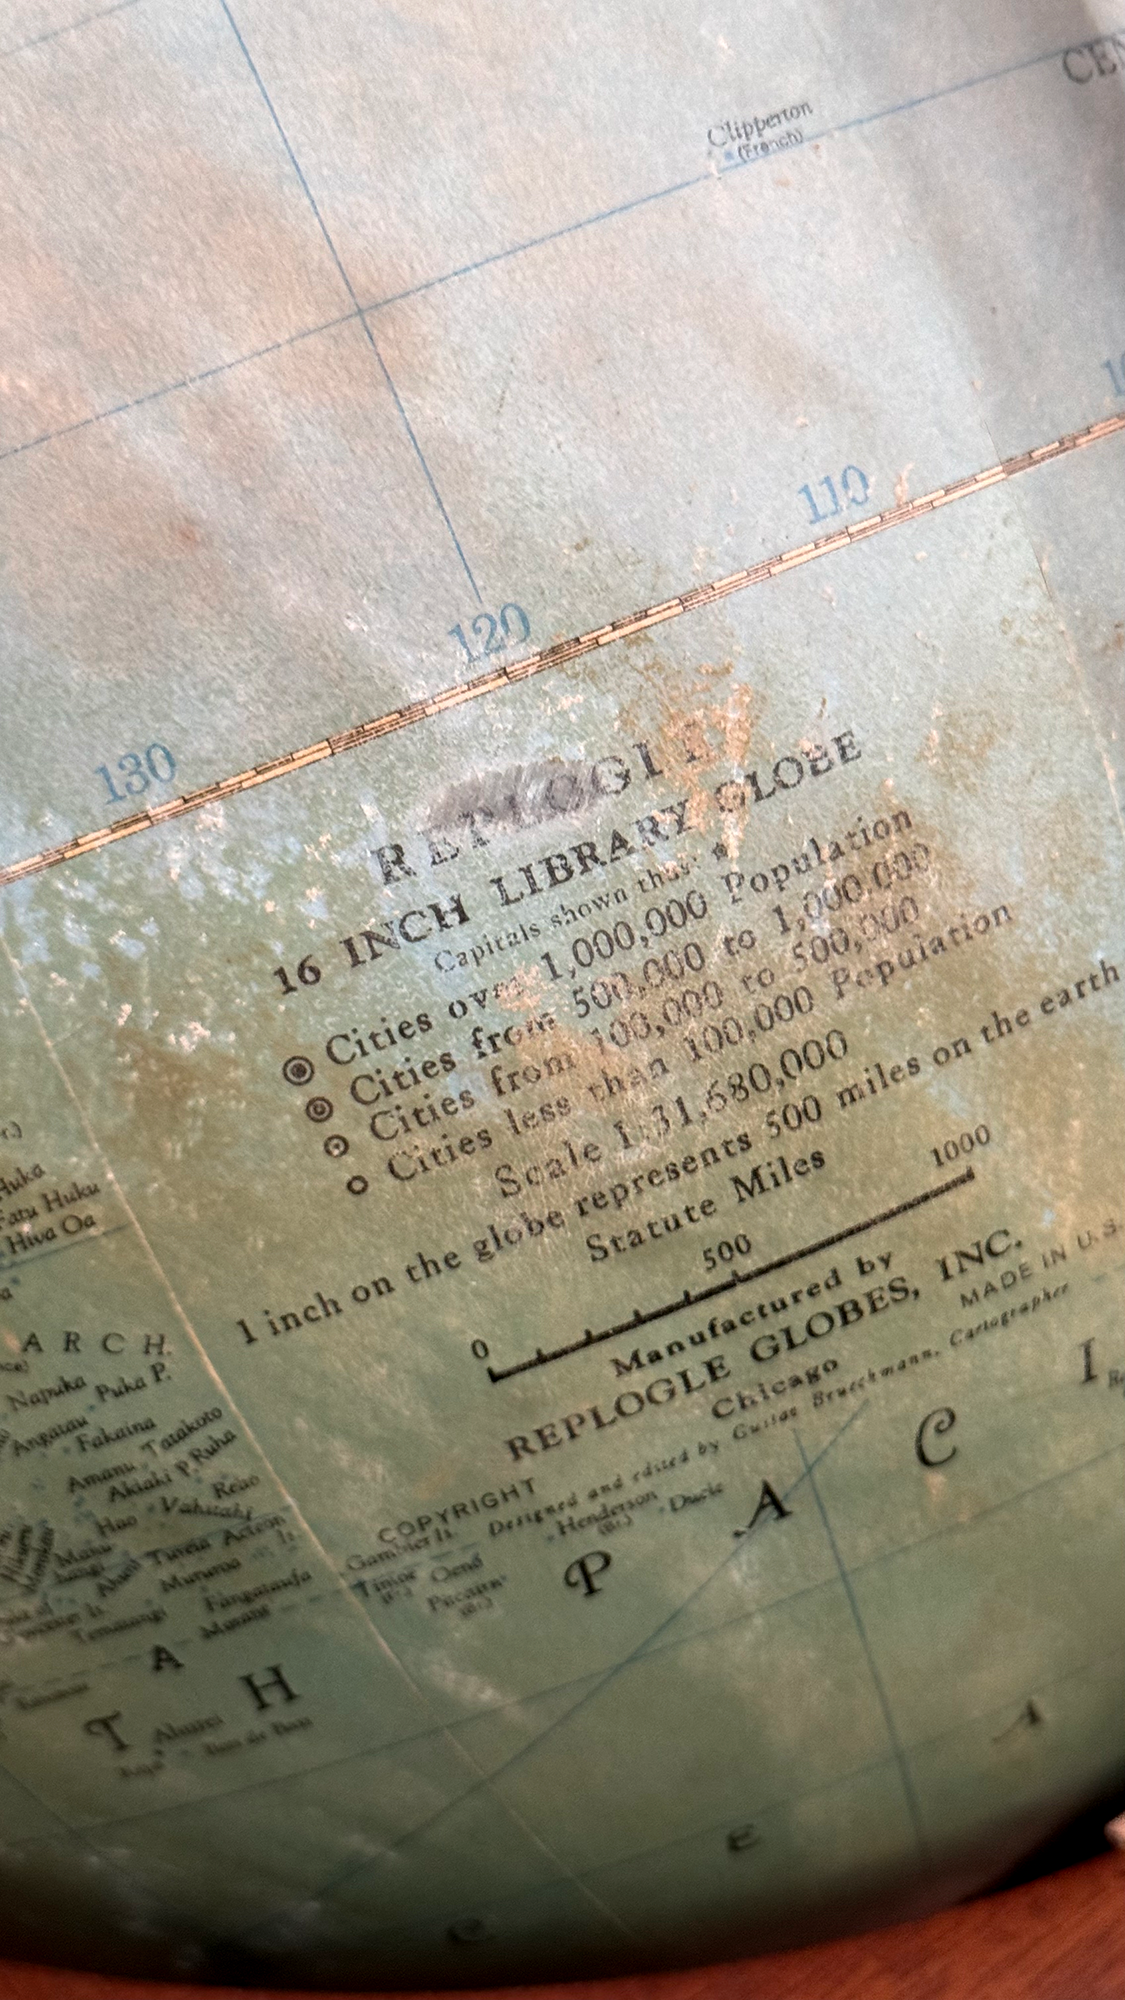 Clipperton
(French)
110
120
130
REPLOGLE
16 INCH LIBRARY GLOBE
Capitals shown thus
Cities over 1,000,000 Population
Cities from 500,000 to 1,000,000
Cities from 100,000 to 500,000
Cities less than 100,000 Population
Scale 1:31,680,000
1 inch on the globe represents 500 miles on the earth
Statute Miles
0 500 1000
Manufactured by
REPLOGLE GLOBES, INC.
Chicago
MADE IN U.S.
COPYRIGHT Designed and edited by Gustav Brueckmann, Cartographer
Fatu Huku
Hiva Oa
ARCH.
Napuka
Puka P.
Angatau
Fakaina
Amanu
Tatakoto
Akiaki
P. Ruha
Reao
Hao
Vahitahi
Tureia
Acteon
Is.
Mururoa
Fangataufa
Gambier Is.
Timoe
(Br.)
Oeno
Pitcairn
(Br.)
Henderson
(Br.)
Ducie
P A C I
A
T H
E
A